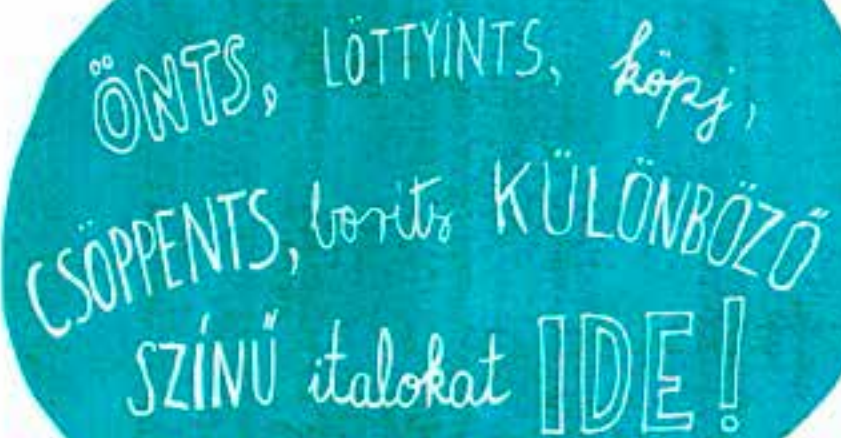 ÖNTS, LÖTTYINTS, köpj,
CSÖPPENTS, boríts KÜLÖNBÖZŐ
SZÍNŰ italokat IDE!